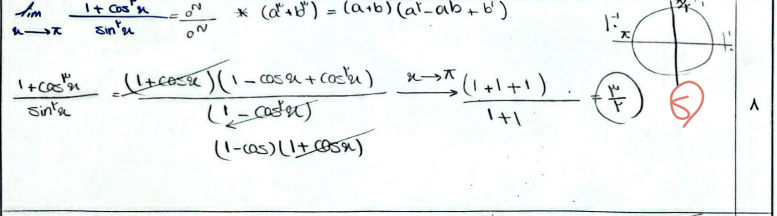 lim x→π (1+cos³x)/(sin²x) = 0~/0~ * (a³+b³) = (a+b)(a²-ab+b²)
(1+cos³x)/(sin²x) = (1+cosx)(1-cosx+cos²x)/(1-cos²x) x→π (1+1+1)/(1+1) = ۳/۲
(1-cos)(1+cosx)
π
۸